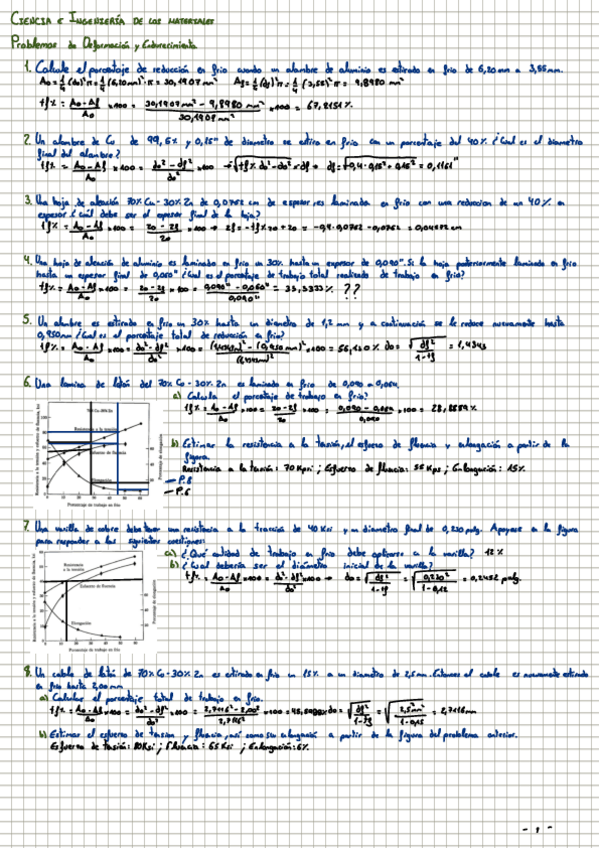 CIENCIA E INGENIERÍA DE LOS MATERIALES
Problemas de Deformación y Endurecimiento
1. Calcule el porcentaje de reducción en frío cuando un alambre de aluminio es estirado en frío de 6,20 mm a 3,55 mm.
A₀ = 1/4 (d₀)² π = 1/4 (6,20 mm)² · π = 30,1907 mm² Af = 1/4 (df)² π = 1/4 (3,55)² π = 9,8980 mm²
tf % = (A₀ - Af)/A₀ × 100 = (30,1907 mm² - 9,8980 mm²)/(30,1907 mm²) × 100 = 67,2151 %
2. Un alambre de Cu de 99,5% y 0,15" de diametro se estira en frío con un porcentaje del 40% ¿Cual es el diametro
final del alambre?
tf % = (A₀ - Af)/A₀ × 100 = (d₀² - df²)/d₀² × 100 → df = 0,1161"
3. Una hoja de aleación 70% Cu - 30% Zn de 0,0762 cm de espesor es laminada en frío con una reduccion de un 40% en
espesor ¿Cuál debe ser el espesor final de la hoja?
tf % = (A₀ - Af)/A₀ × 100 =
4. Una hoja de aleación de aluminio es laminada en frío un 30% hasta un espesor de 0,090". Si la hoja posteriormente laminada en frío
hasta un espesor final de 0,060" ¿Cual es el porcentaje de trabajo total realizado de trabajo en frío?
tf % = (A₀ - Af)/A₀ × 100 = × 100 = (0,090" - 0,060")/(0,090") × 100 = 33,3333 % ??
5. Un alambre es estirado en frío un 30% hasta un diametro de 1,2 mm y a continuación se le reduce nuevamente hasta
0,950 mm ¿Cual es el porcentaje total de reducción en frío?
tf % = (A₀ - Af)/A₀ × 100 = (d₀² - df²)/d₀² × 100 = × 100 = 56,130 % d₀ = √(df²/(1 - tf)) = 1,4343
6. Una lamina de latón del 70% Cu - 30% Zn es laminada en frío de 0,090 a 0,064.
a) Calcula el porcentaje de trabajo en frío?
tf % = (A₀ - Af)/A₀ × 100 = × 100 = (0,090 - 0,064)/0,090 × 100 = 28,8889 %
70% Cu-30% Zn
Resistencia a la tensión
Esfuerzo de fluencia
Elongación
Porcentaje de trabajo en frío
b) Estimar la resistencia a la tensión, el esfuerzo de fluencia y elongación a partir de la
figura.
Resistencia a la tensión: 70 Kpsi ; Esfuerzo de fluencia: 55 Kpsi ; Elongación: 15%
— P.8
— P.6
7. Una varilla de cobre debe tener una resistencia a la tracción de 40 Ksi y un diametro final de 0,230 pulg. Apoyese en la figura
para responder a las siguientes cuestiones:
a) ¿Qué cantidad de trabajo en frío debe aplicarse a la varilla? 12 %
b) ¿Cual debería ser el diámetro inicial de la varilla?
tf % = (A₀ - Af)/A₀ × 100 = (d₀² - df²)/d₀² × 100 → d₀ = √(df²/(1 - tf)) = √(0,230²/(1 - 0,12)) = 0,2452 pulg.
Resistencia
a la tensión
Esfuerzo de fluencia
Elongación
Porcentaje de trabajo en frío
8. Un cable de latón de 70% Cu - 30% Zn es estirado en frío un 15% a un diametro de 2,5 mm. Entonces el cable es nuevamente estirado
en frío hasta 2,00 mm
a) Calcular el porcentaje total de trabajo en frío.
tf % = (A₀ - Af)/A₀ × 100 = (d₀² - df²)/d₀² × 100 = (2,7116² - 2,00²)/2,7116² × 100 = d₀ = √(df²/(1 - tf)) = √(2,5 mm²/(1 - 0,15)) = 2,7116 mm
b) Estimar el esfuerzo de tension y fluencia, así como su elongación a partir de la figura del problema anterior.
Esfuerzo de tensión: 80 Ksi ; Fluencia: 65 Ksi ; Elongación: 6%
- 1 -